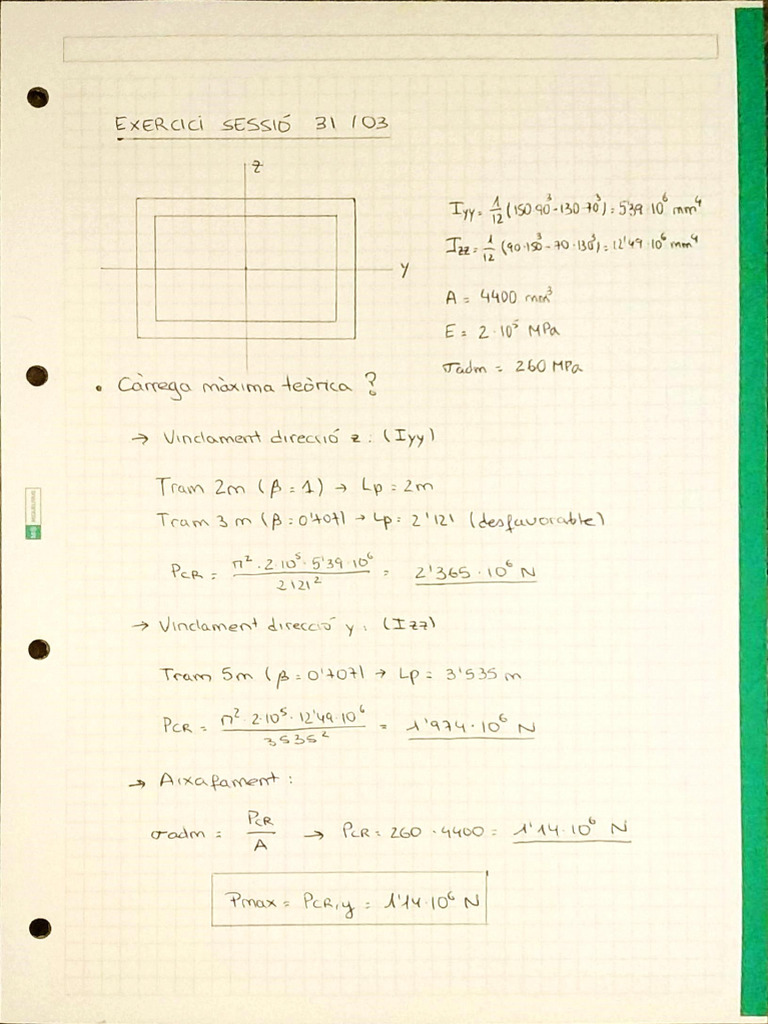 EXERCICI SESSIÓ 31 /03
z
y
Iyy = 1/12 (150·90³-130·70³) = 5'39·10⁶ mm⁴
Izz = 1/12 (90·150³-70·130³) = 12'49·10⁶ mm⁴
A = 4400 mm³
E = 2·10⁵ MPa
σadm = 260 MPa
• Càrrega màxima teòrica ?
→ Vinclament direcció z : (Iyy)
Tram 2m (β = 1) → Lp = 2m
Tram 3m (β = 0'707) → Lp = 2'121 (desfavorable)
PCR = π²·2·10⁵·5'39·10⁶ / 2121² = 2'365·10⁶ N
→ Vinclament direcció y : (Izz)
Tram 5m (β = 0'707) → Lp = 3'535 m
PCR = π²·2·10⁵·12'49·10⁶ / 3535² = 1'974·10⁶ N
→ Aixafament :
σadm = PCR / A → PCR = 260·4400 = 1'14·10⁶ N
Pmax = PCR,y = 1'14·10⁶ N